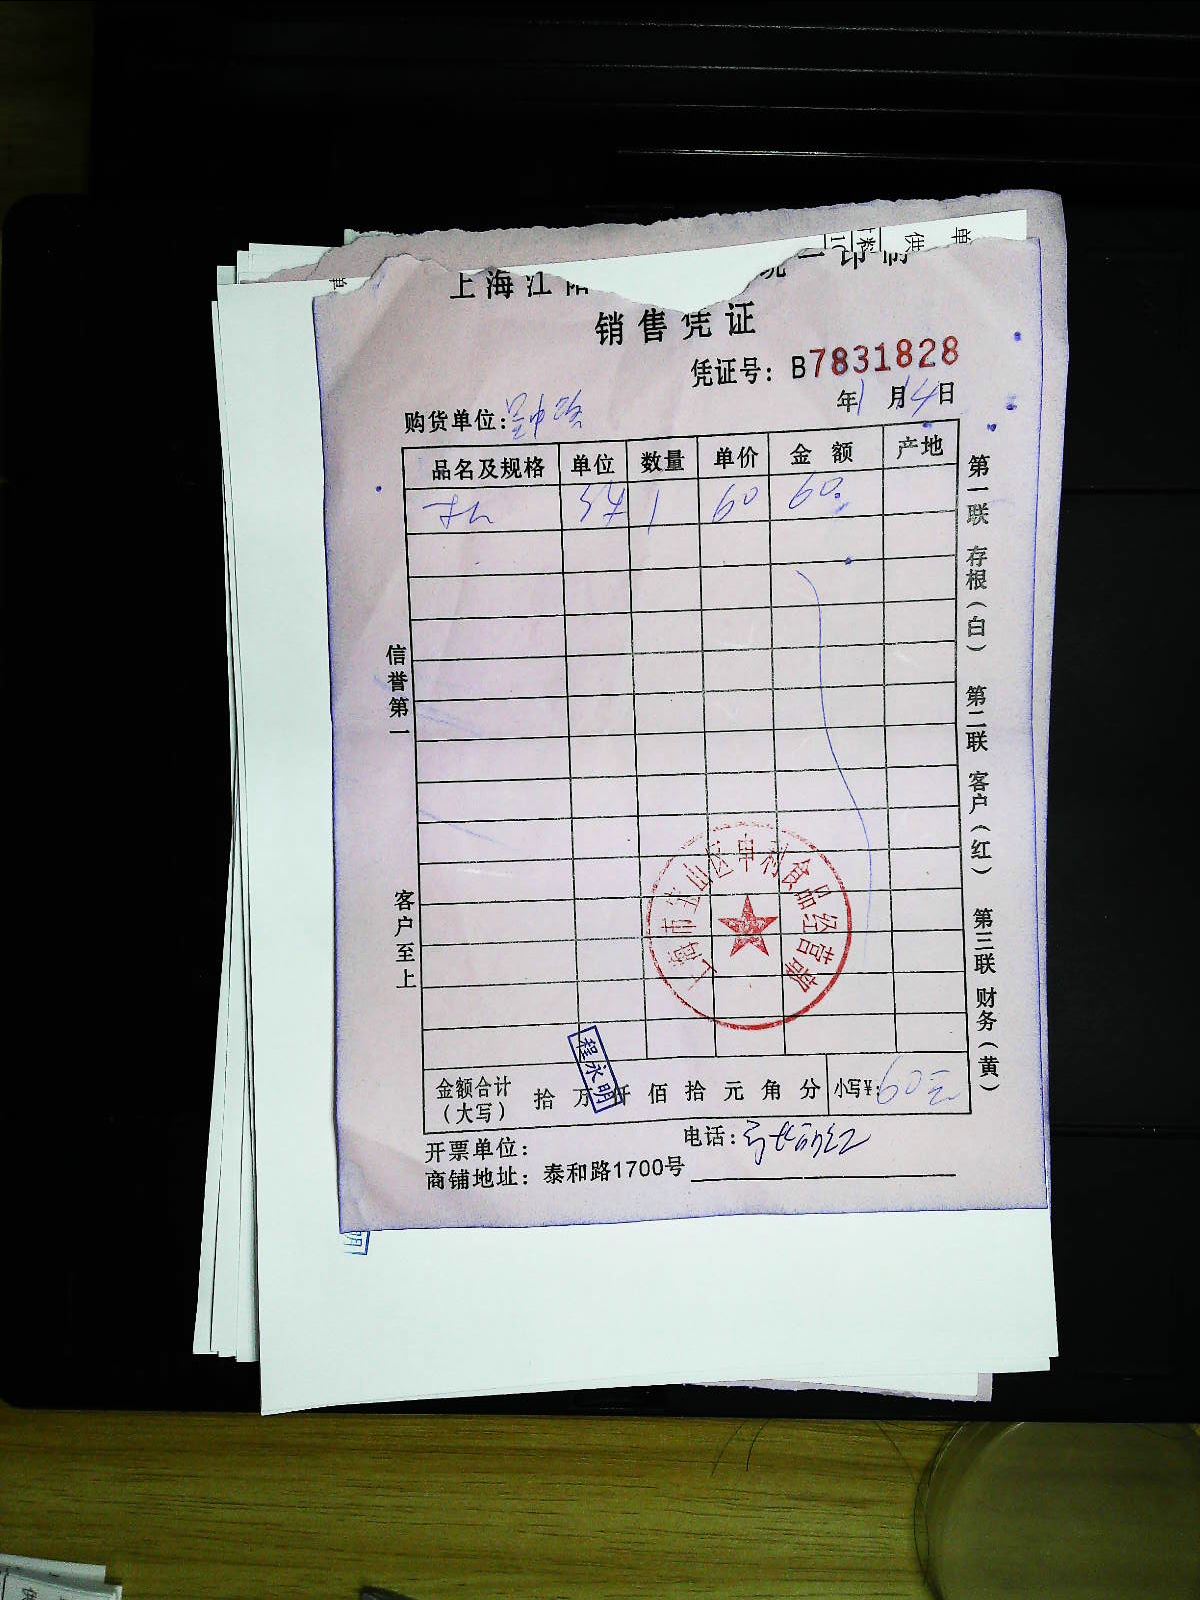 上海江 统一印制
销售凭证
凭证号：B7831828
年1月14日
购货单位：吴中路
品名及规格 单位 数量 单价 金额 产地
1 60 60
信誉第一
客户至上
第一联 存根（白） 第二联 客户（红） 第三联 财务（黄）
上海市宝山区申利食品经营部
程永明
金额合计（大写） 拾 万 仟 佰 拾 元 角 分 小写¥：60元
开票单位： 电话：
商铺地址：泰和路1700号